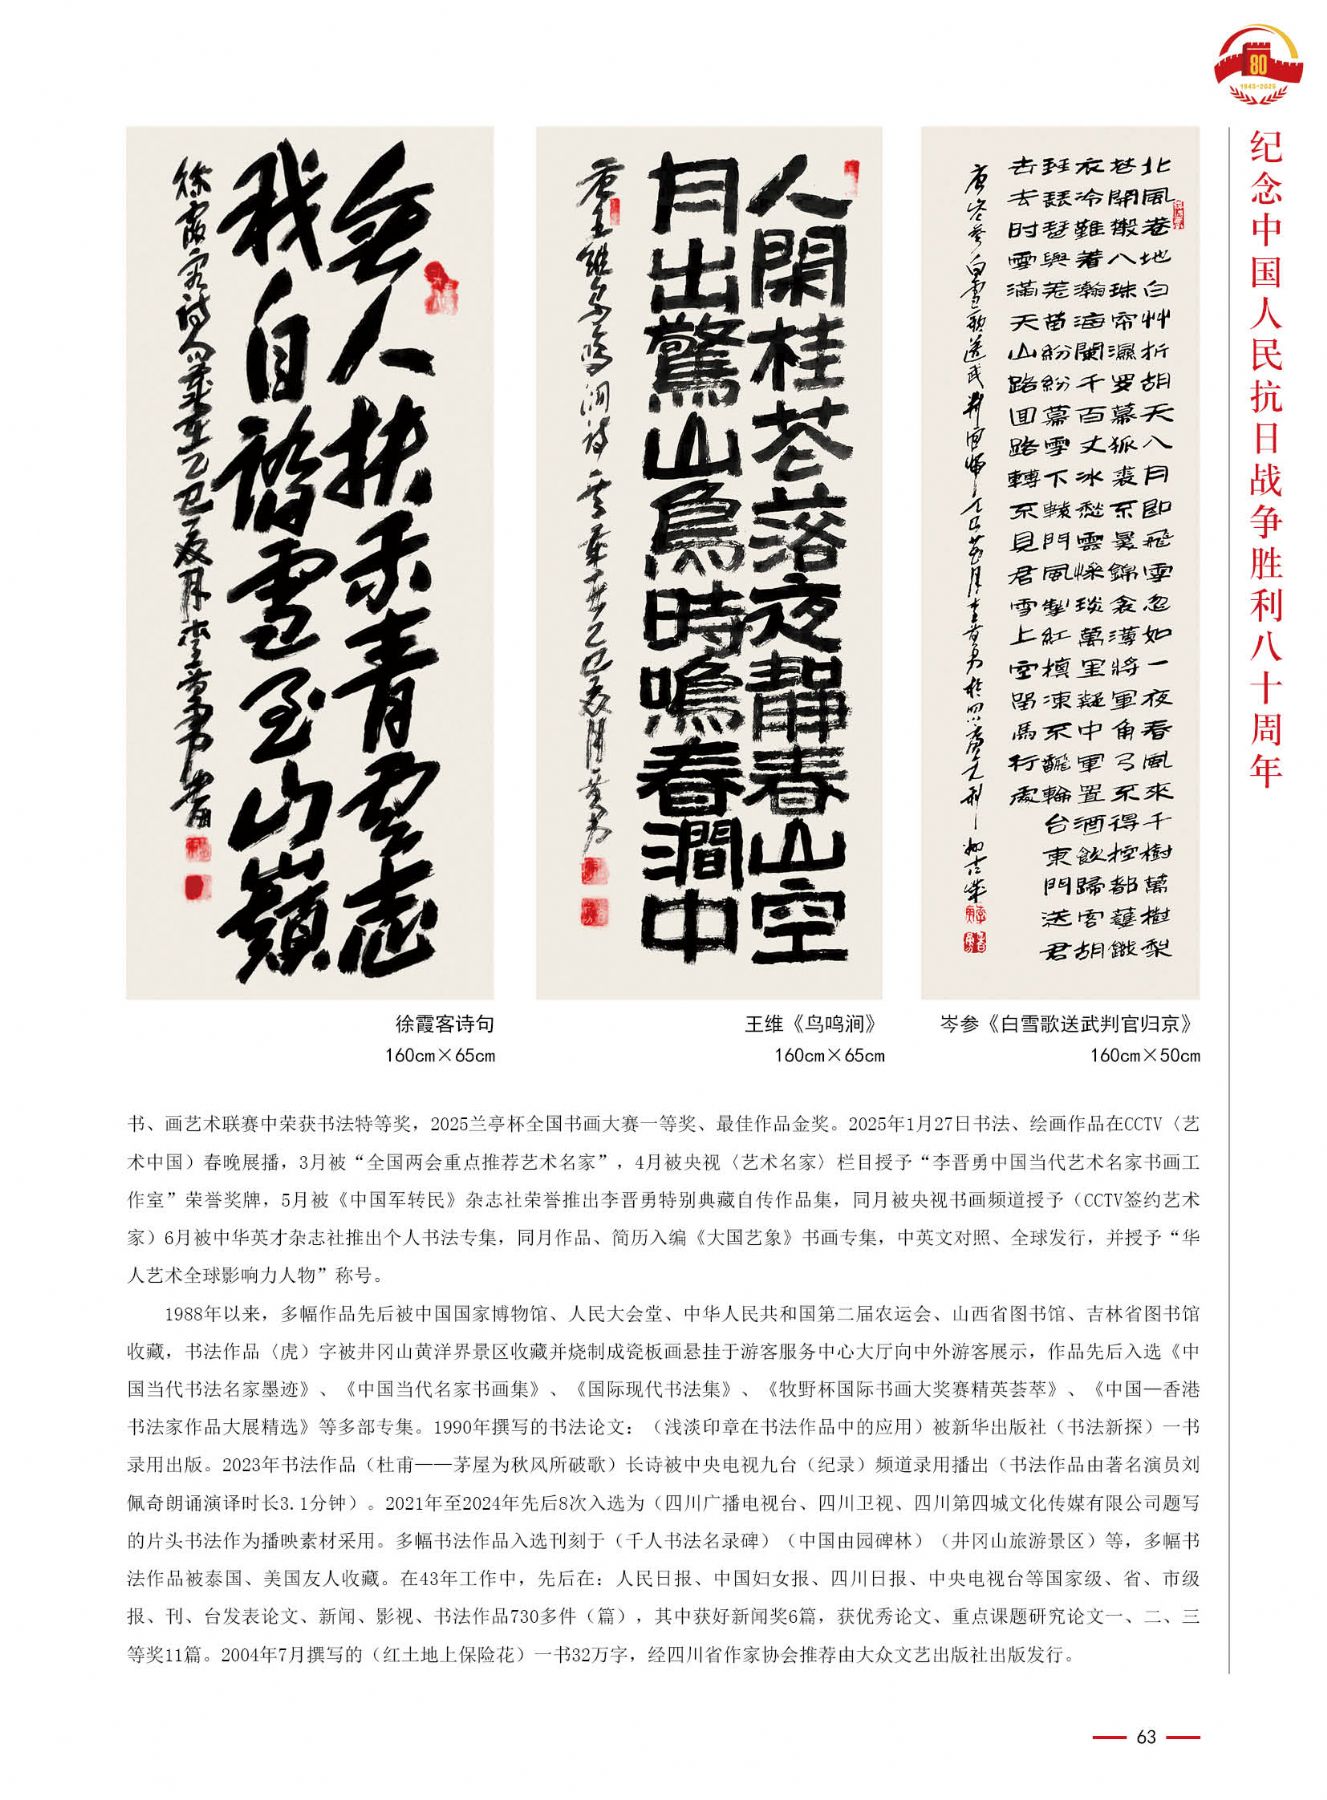 80
1945-2025
纪念中国人民抗日战争胜利八十周年
无人扶我青云志
我自踏雪至山巅
人闲桂花落夜静春山空
月出驚山鳥時鳴春澗中
北風卷地白艸折胡天八月即飛雪忽如一夜春風來千樹萬樹梨
徐霞客诗句
160cm×65cm
王维《鸟鸣涧》
160cm×65cm
岑参《白雪歌送武判官归京》
160cm×50cm
书、画艺术联赛中荣获书法特等奖，2025兰亭杯全国书画大赛一等奖、最佳作品金奖。2025年1月27日书法、绘画作品在CCTV（艺
术中国）春晚展播，3月被“全国两会重点推荐艺术名家”，4月被央视〈艺术名家〉栏目授予“李晋勇中国当代艺术名家书画工
作室”荣誉奖牌，5月被《中国军转民》杂志社荣誉推出李晋勇特别典藏自传作品集，同月被央视书画频道授予（CCTV签约艺术
家）6月被中华英才杂志社推出个人书法专集，同月作品、简历入编《大国艺象》书画专集，中英文对照、全球发行，并授予“华
人艺术全球影响力人物”称号。
1988年以来，多幅作品先后被中国国家博物馆、人民大会堂、中华人民共和国第二届农运会、山西省图书馆、吉林省图书馆
收藏，书法作品〈虎〉字被井冈山黄洋界景区收藏并烧制成瓷板画悬挂于游客服务中心大厅向中外游客展示，作品先后入选《中
国当代书法名家墨迹》、《中国当代名家书画集》、《国际现代书法集》、《牧野杯国际书画大奖赛精英荟萃》、《中国—香港
书法家作品大展精选》等多部专集。1990年撰写的书法论文：（浅淡印章在书法作品中的应用）被新华出版社（书法新探）一书
录用出版。2023年书法作品（杜甫——茅屋为秋风所破歌）长诗被中央电视九台（纪录）频道录用播出（书法作品由著名演员刘
佩奇朗诵演译时长3.1分钟）。2021年至2024年先后8次入选为（四川广播电视台、四川卫视、四川第四城文化传媒有限公司题写
的片头书法作为播映素材采用。多幅书法作品入选刊刻于（千人书法名录碑）（中国由园碑林）（井冈山旅游景区）等，多幅书
法作品被泰国、美国友人收藏。在43年工作中，先后在：人民日报、中国妇女报、四川日报、中央电视台等国家级、省、市级
报、刊、台发表论文、新闻、影视、书法作品730多件（篇），其中获好新闻奖6篇，获优秀论文、重点课题研究论文一、二、三
等奖11篇。2004年7月撰写的（红土地上保险花）一书32万字，经四川省作家协会推荐由大众文艺出版社出版发行。
63